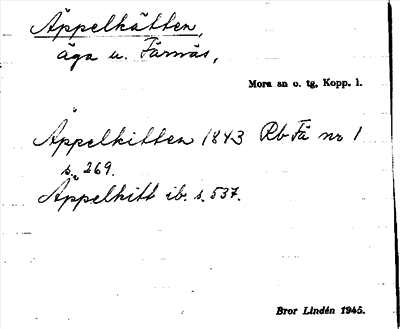 Äppelkätten,
äga u. Färnäs,
Mora sn o. tg, Kopp. l.
Äppelkitten 1843 Rb Fä nr 1
s. 269.
Äppelkitt ib. s. 537.
Bror Lindén 1945.